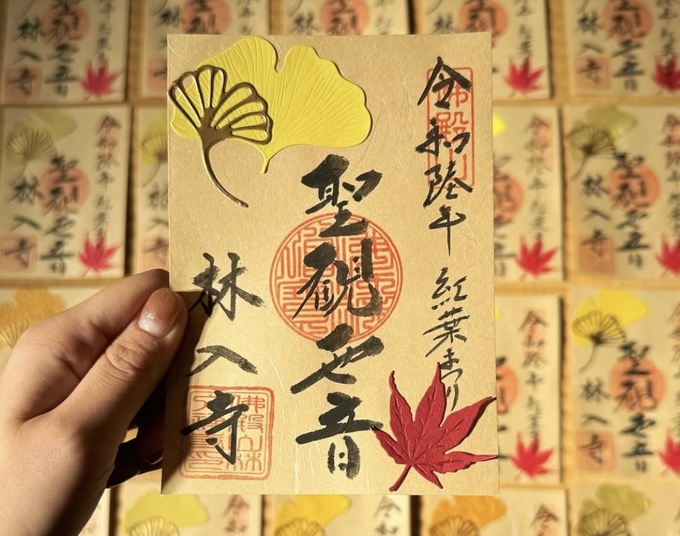 令和陸年 紅葉まつり
佛殿山
聖観世音
林入寺